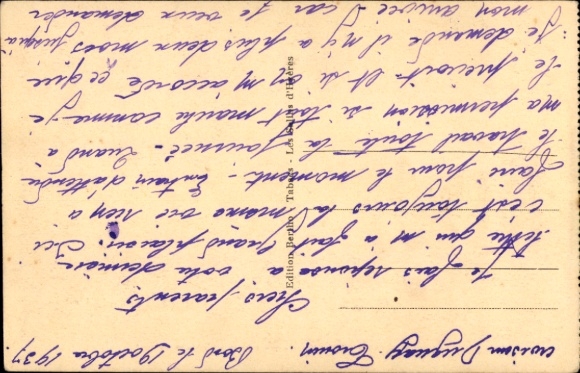 croiseur Duguay Trouin. Bord le 19 octobre 1937.
Chers parents
Je fais reponse a votre derniere
lettre qui m'a fait grand plaisir. Ici
c'est toujours la meme vie rien a
faire pour le moment. Entrain d'attendre
le travail toute la journee. Quand a
ma permission si tout marche comme je
le prevoit. Et si on m'accorde ce que
je demande il n'y a plus deux mois jusqu'a
mon arrivee car je veux demander
Edition Bertho Tabacs - Les Salins d'Hyères